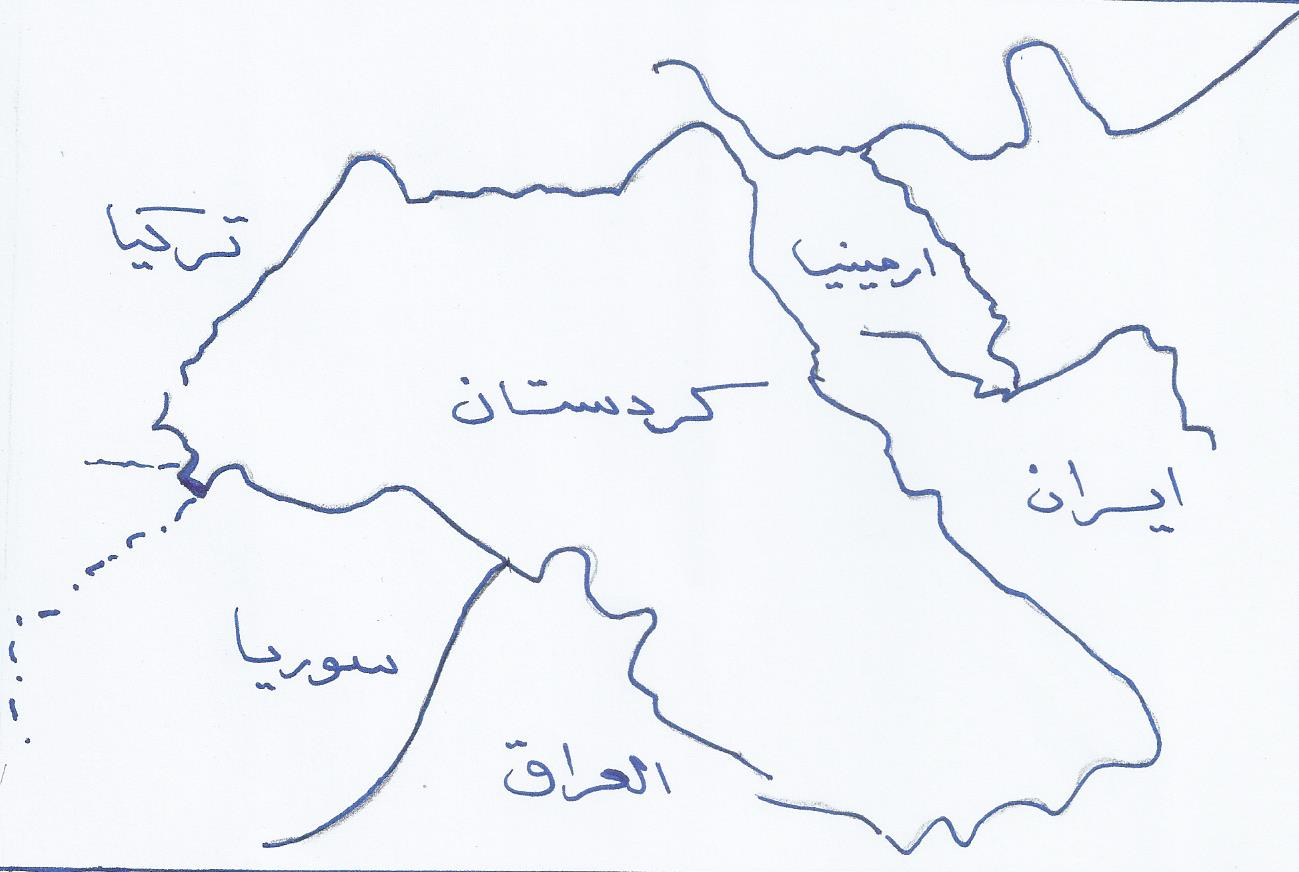 تركيا
ارمينيا
كردستان
ايران
سوريا
العراق